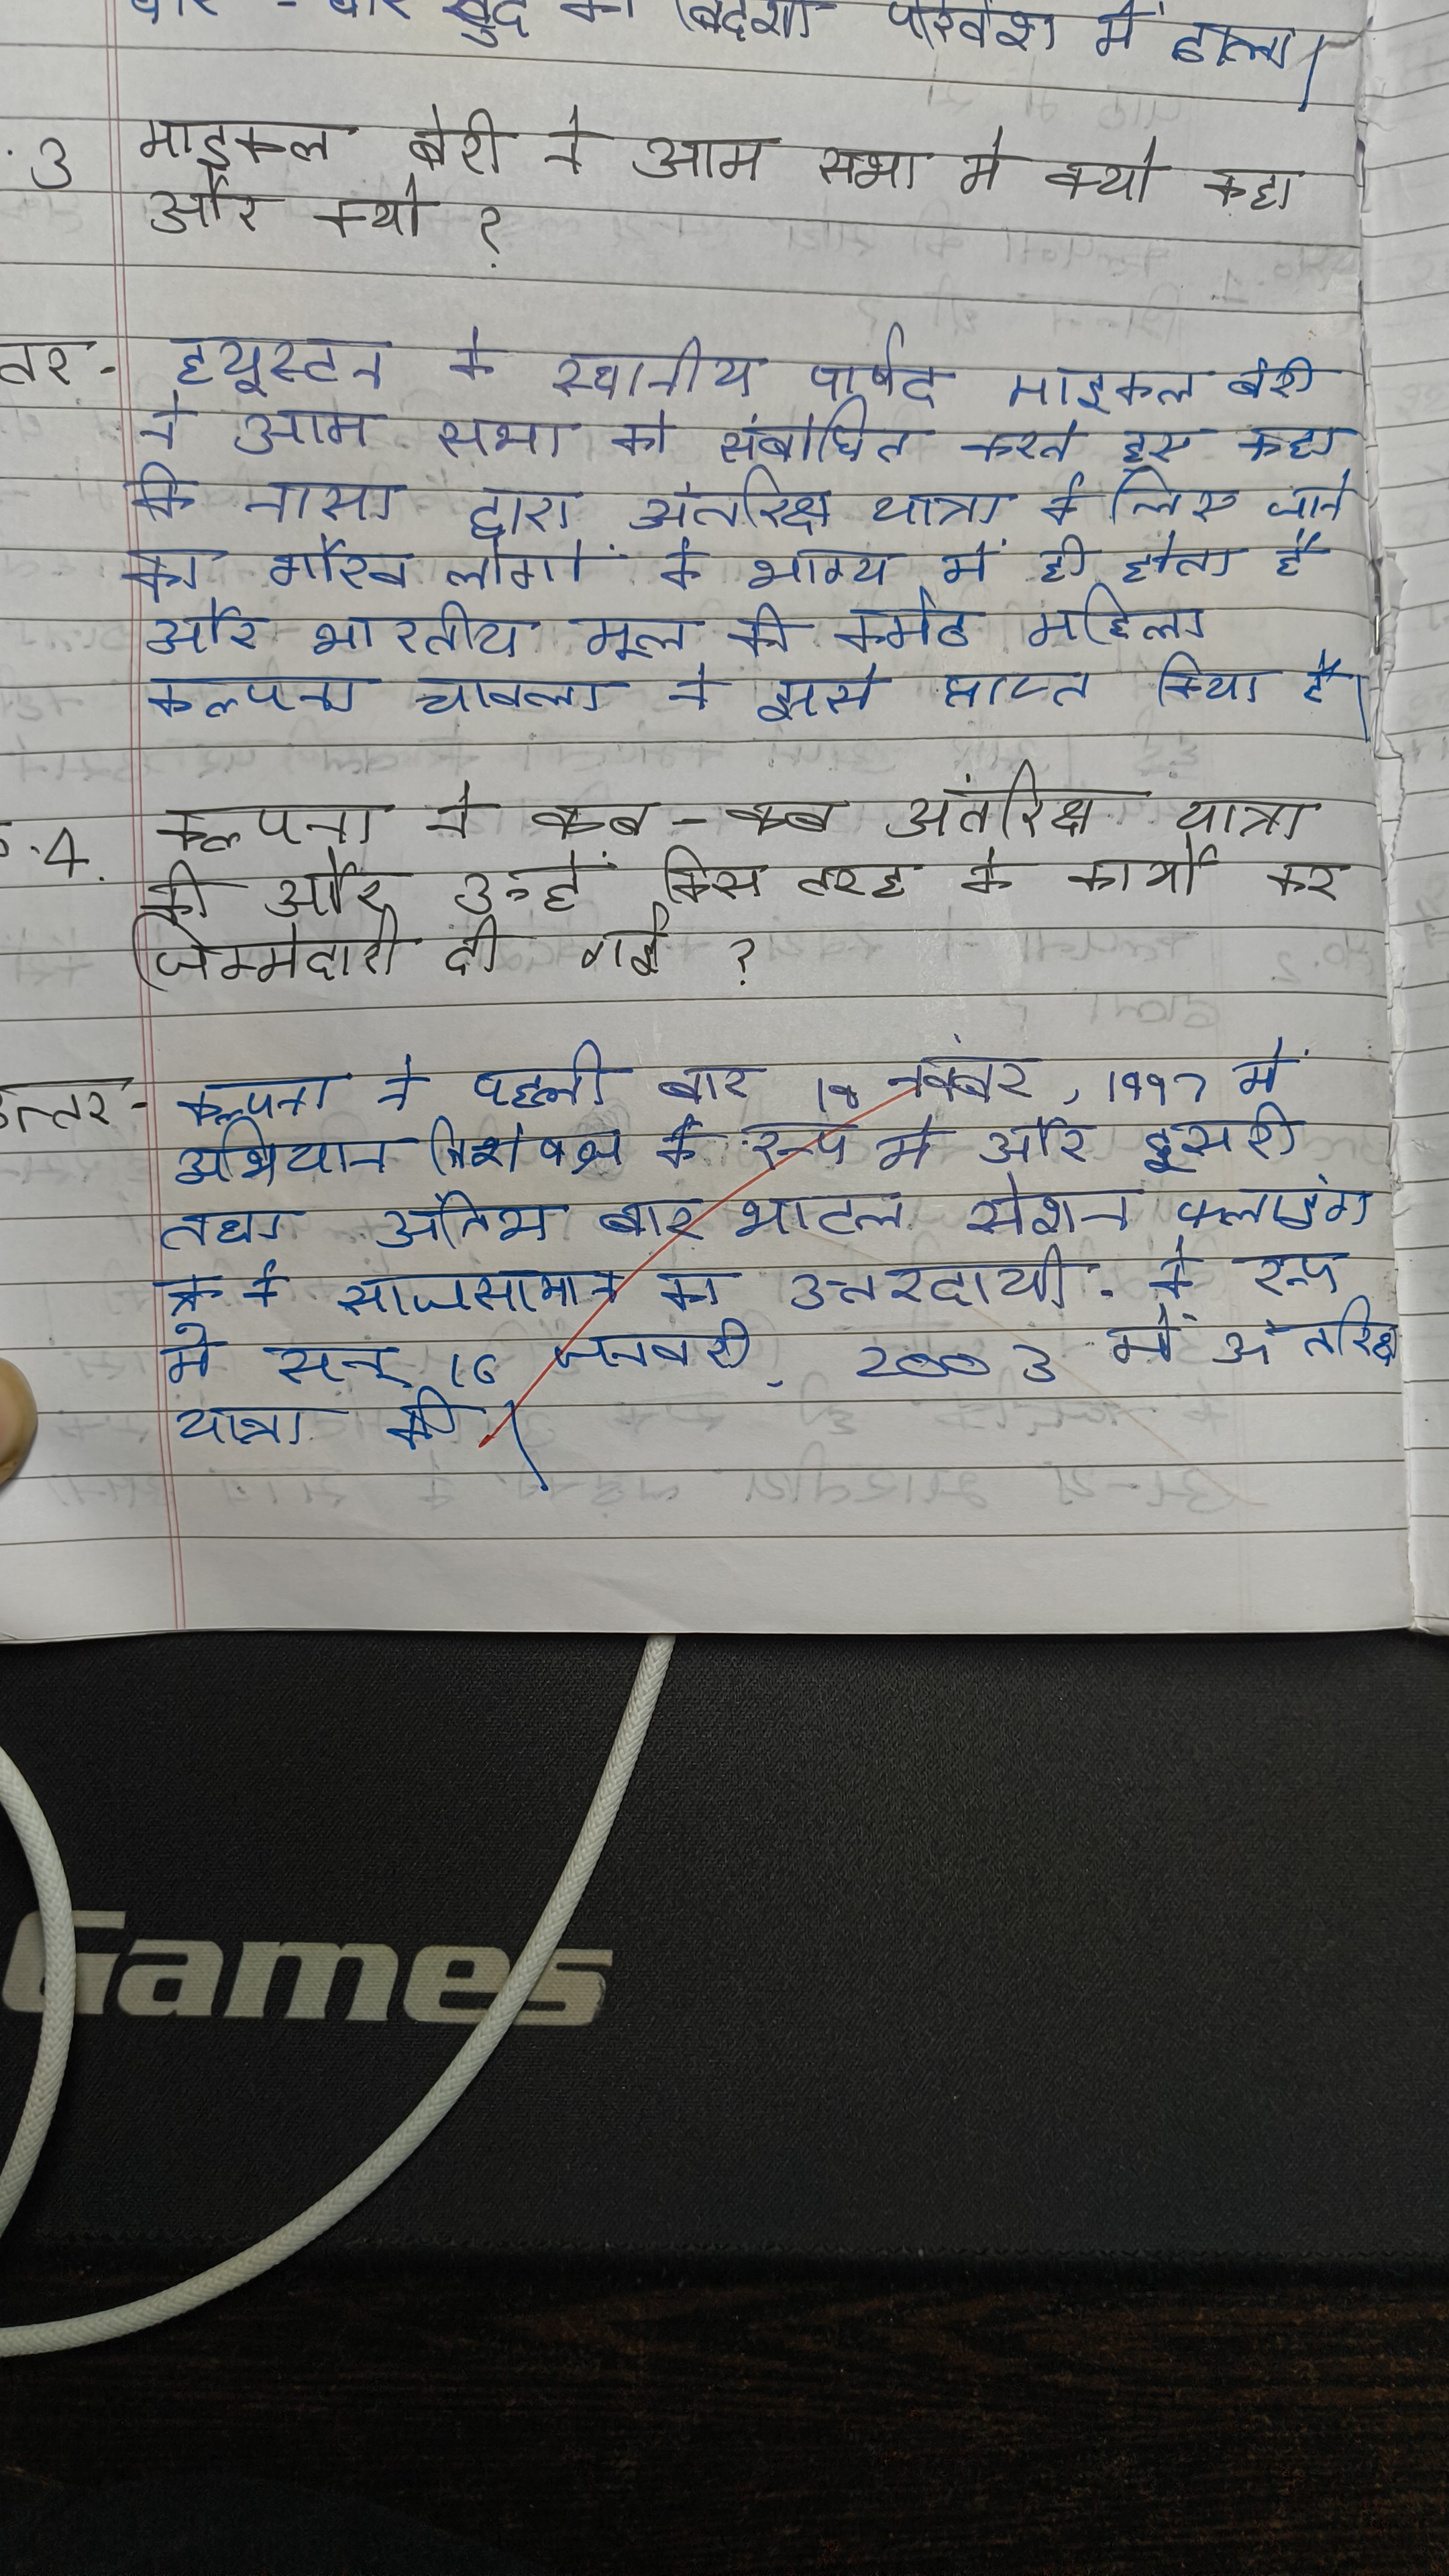 खुद को विदेशी परिवेश में ढाला।
.3 माइकल बेरी ने आम सभा में क्यो कहा
और क्यो ?
तर- ह्यूस्टन के स्थानीय पार्षद माइकल बेरी
ने आम सभा को संबोधित करते हुए कहा
कि नासा द्वारा अंतरिक्ष यात्रा के लिए जाने
का गौरव लोगों के भाग्य में ही होता है
और भारतीय मूल की कर्मठ महिला
कल्पना चावला ने इसे प्राप्त किया है।
.4. कल्पना ने कब-कब अंतरिक्ष यात्रा
की और उन्हें किस तरह के कार्यो कर
जिम्मेदारी दी गई ?
उत्तर- कल्पना ने पहली बार 19 नवंबर, 1997 में
अभियान विशेषज्ञ के रूप में और दूसरी
तथा अंतिम बार शटल सेशन
के साजसामान का उत्तरदायी के रूप
में सन् 16 जनवरी, 2003 में अंतरिक्ष
यात्रा की।
Games